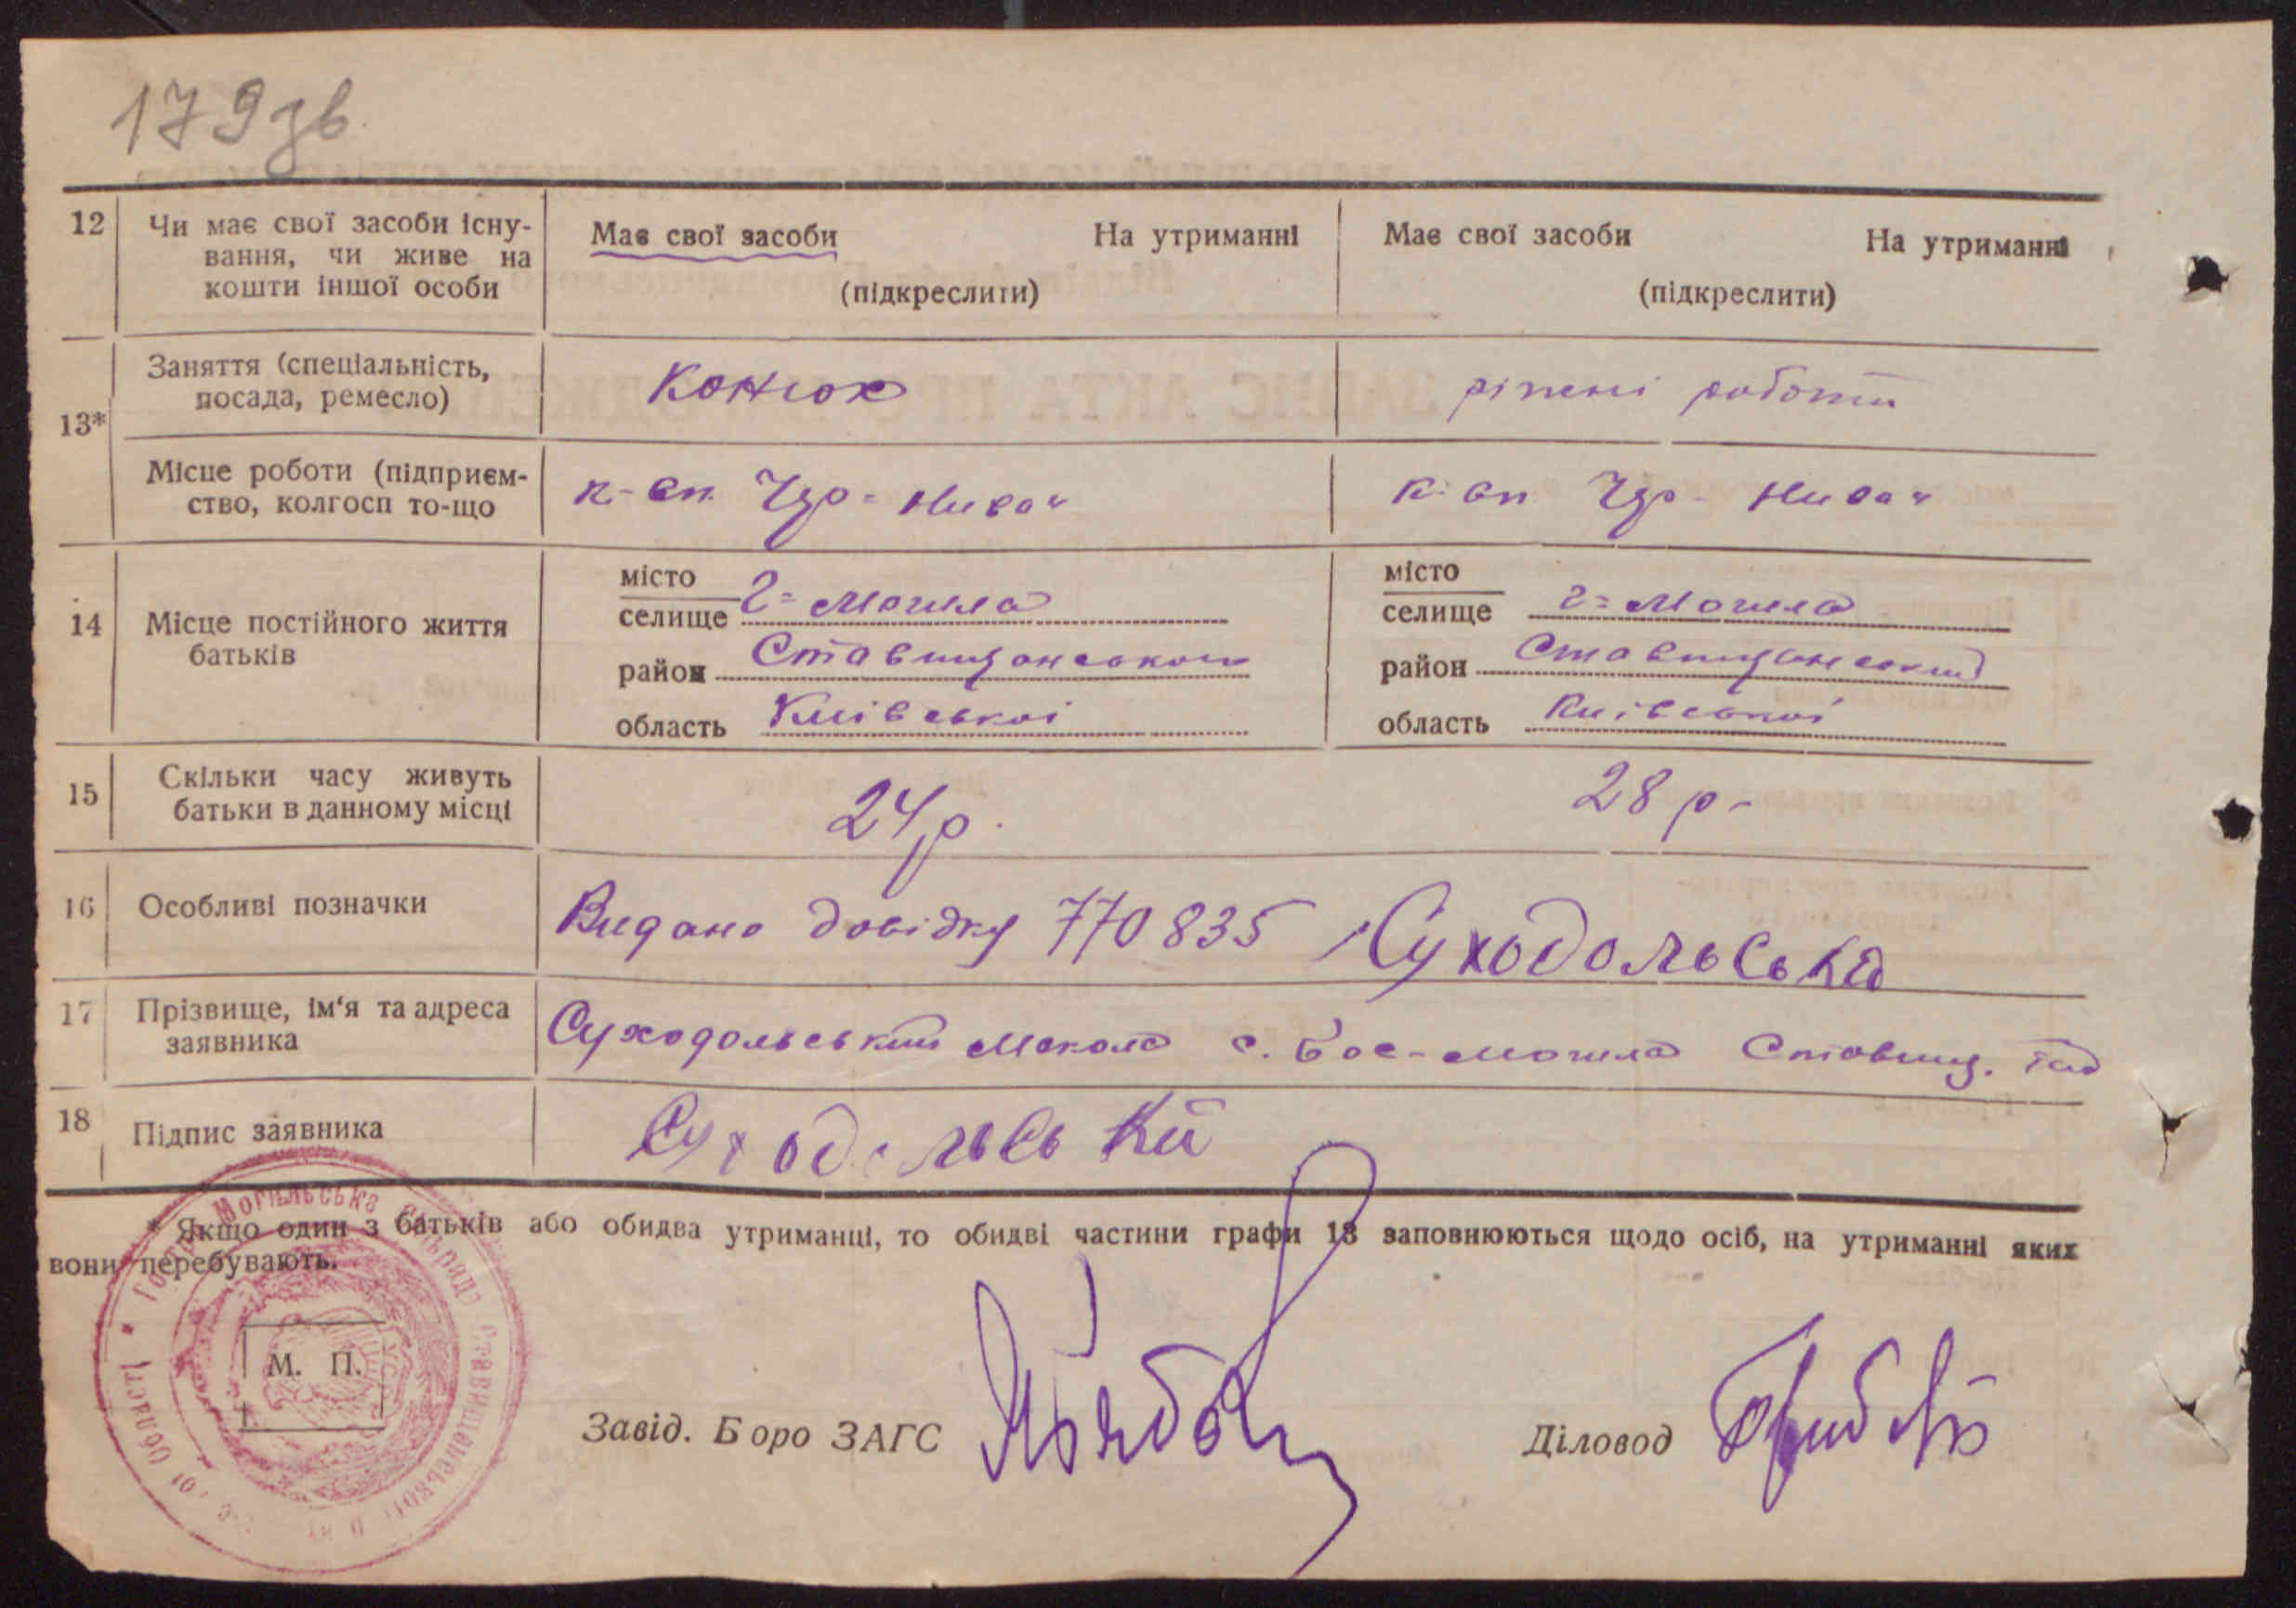 179 зв.
12 Чи має свої засоби існу-
вання, чи живе на
кошти іншої особи
Має свої засоби На утриманні
(підкреслити)
Має свої засоби На утриманні
(підкреслити)
13*
Заняття (спеціальність,
посада, ремесло)
Конюх
різні роботи
Місце роботи (підприєм-
ство, колгосп то-що
к-сп. Чер-Нива"
к-сп Чер-Нива"
14 Місце постійного життя
батьків
місто
селище Г=Могила
район Ставищанського
область Київської
місто
селище Г=Могила
район Ставищанський
область Київської
15 Скільки часу живуть
батьки в данному місці
24 р.
28 р-
16 Особливі позначки
Видано довідку 770835 Суходольський
17 Прізвище, ім'я та адреса
заявника
Суходольський Микола с. Гос-Могила Ставищ.
18 Підпис заявника
Суходольський
* Якщо один з батьків або обидва утриманці, то обидві частини графи 13 заповнюються щодо осіб, на утриманні яких
вони перебувають.
Могильська сільрада Ставищанського
області
М. П.
Завід. Бюро ЗАГС
Діловод